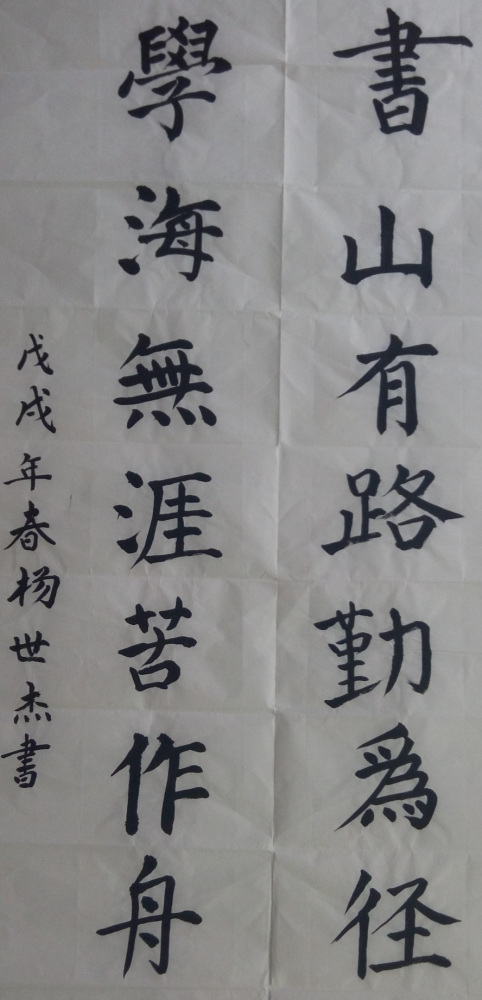 書山有路勤為径
學海無涯苦作舟
戊戌年春杨世杰書